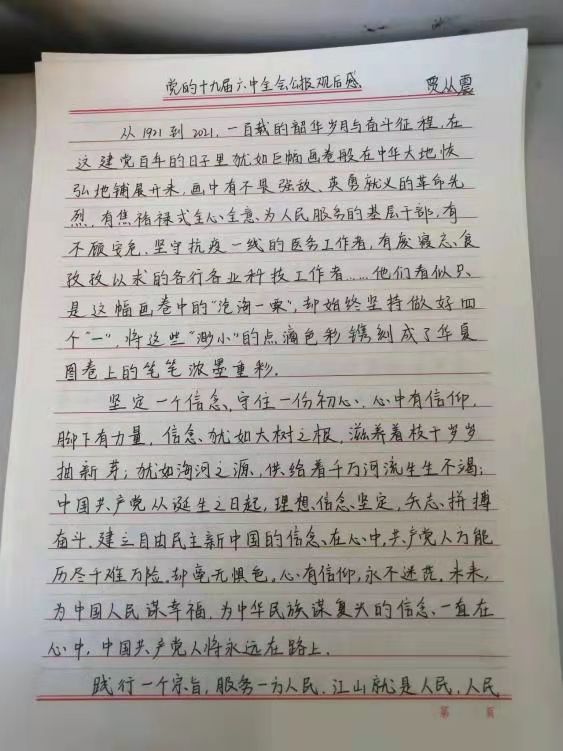 党的十九届六中全会公报观后感 贾从震
从1921到2021,一百载的韶华岁月与奋斗征程,在
这建党百年的日子里犹如巨幅画卷般在中华大地恢
弘地铺展开来,画中有不畏强敌、英勇就义的革命先
烈,有焦裕禄式全心全意为人民服务的基层干部,有
不顾安危、坚守抗疫一线的医务工作者,有废寝忘食
孜孜以求的各行各业科技工作者……他们看似只
是这幅画卷中的“沧海一粟”,却始终坚持做好四
个“一”,将这些“渺小”的点滴色彩镌刻成了华夏
图卷上的笔笔浓墨重彩.
坚定一个信念、守住一份初心.心中有信仰,
脚下有力量,信念犹如大树之根,滋养着枝干岁岁
抽新芽;犹如海河之源,供给着千万河流生生不竭;
中国共产党从诞生之日起,理想信念坚定,矢志拼搏
奋斗.建立自由民主新中国的信念在心中,共产党人方能
历尽千难万险,却毫无惧色,心有信仰,永不迷茫.未来,
为中国人民谋幸福,为中华民族谋复兴的信念一直在
心中,中国共产党人将永远在路上.
践行一个宗旨,服务一方人民.江山就是人民,人民
第 页